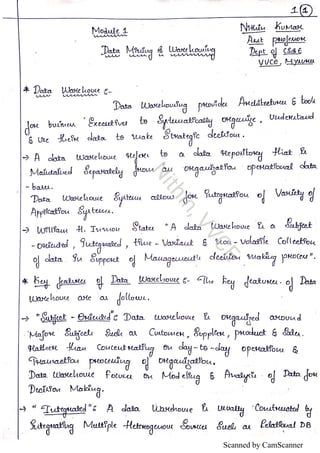 1 1
Module 1
Nithin Kumar
Asst professor
Data Mining & Warehousing
Dept of CS&E
VVCE, Mysuru
* Data Warehouse :-
Data Warehousing provides Architectures & tools
for business Executives to Systematically organize, Understand
& use their data to make Strategic decision.
→ A data warehouse refers to a data repository that is
Maintained Separately from an organization operational data
-base.
Data Warehouse System allow for Integration of Variety of
Application Systems.
→ William H. Inmon States "A data Warehouse is a Subject
-oriented, Integrated, time-Variant & non-volatile Collection
of data in Support of Management's decision making process".
* Key features of Data Warehouse :- The key features of Data
Warehouse are as follows.
→ "Subject-Oriented": Data Warehouse is organized around
Major Subjects Such as Customer, Supplier, product & Sales.
Rather than Concentrating on day-to-day operations &
Transaction processing of organization.
Data Warehouse focuses on Modeling & Analysis of Data for
Decision Making.
→ "Integrated": A data Warehouse is usually Constructed by
Integrating Multiple Heterogeneous Sources Such as Relational DB
Nithin, VVCE
Scanned by CamScanner